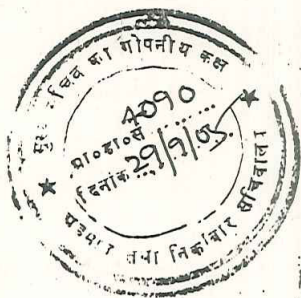 सचिव का गोपनीय कक्ष
प्रा०डा०सं 4090
दिनांक 29/9/05
तथा निकोबार सचिवालय